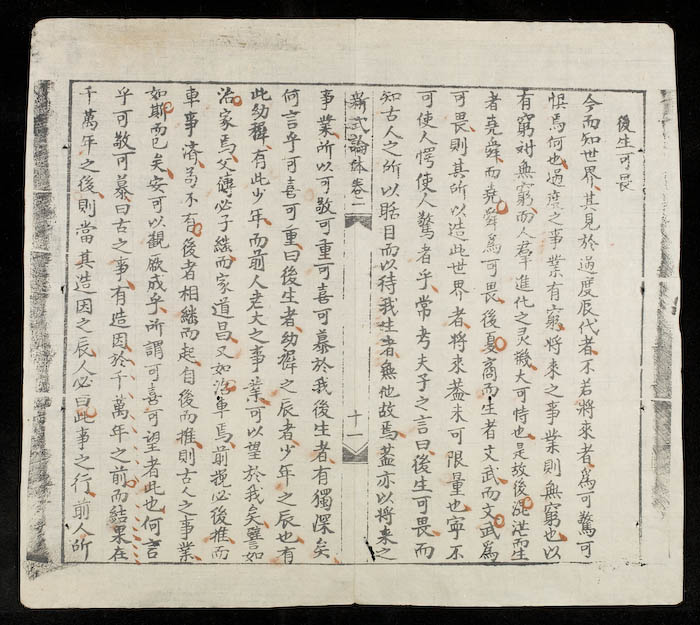 後生可畏
今而知世界其見於過度辰代者不若將來者為可驚可
惧焉何也過度之事業有窮將来之事業則無窮也以
有窮对無窮而人羣進化之灵機大可恃也是故後混沌而生
者堯舜而堯舜為可畏後夏商而生者文武而文武為
可畏則其所以造此世界者將來葢未可限量也寧不
可使人愕使人驚者乎常考夫子之言曰後生可畏而
知古人之所以眙目而以待我生者無他故焉葢亦以將來之
新式論体卷二
十一
事業所以可敬可重可喜可慕於我後生者有獨深矣
何言乎可喜可重曰後生者幼穉之辰者少年之辰也有
此幼穉有此少年而前人老大之事業可以望於我矣譬如
治家焉父傳必子継而家道昌又如治車焉前挽必後推而
車事済苟不有後者相継而起自後而推則古人之事業
如斯而已矣安可以觀厥成乎所謂可喜可望者此也何言
乎可敬可慕曰古之事有造因於千萬年之前而結果在
千萬年之後則當其造因之辰人必曰此事之行前人所